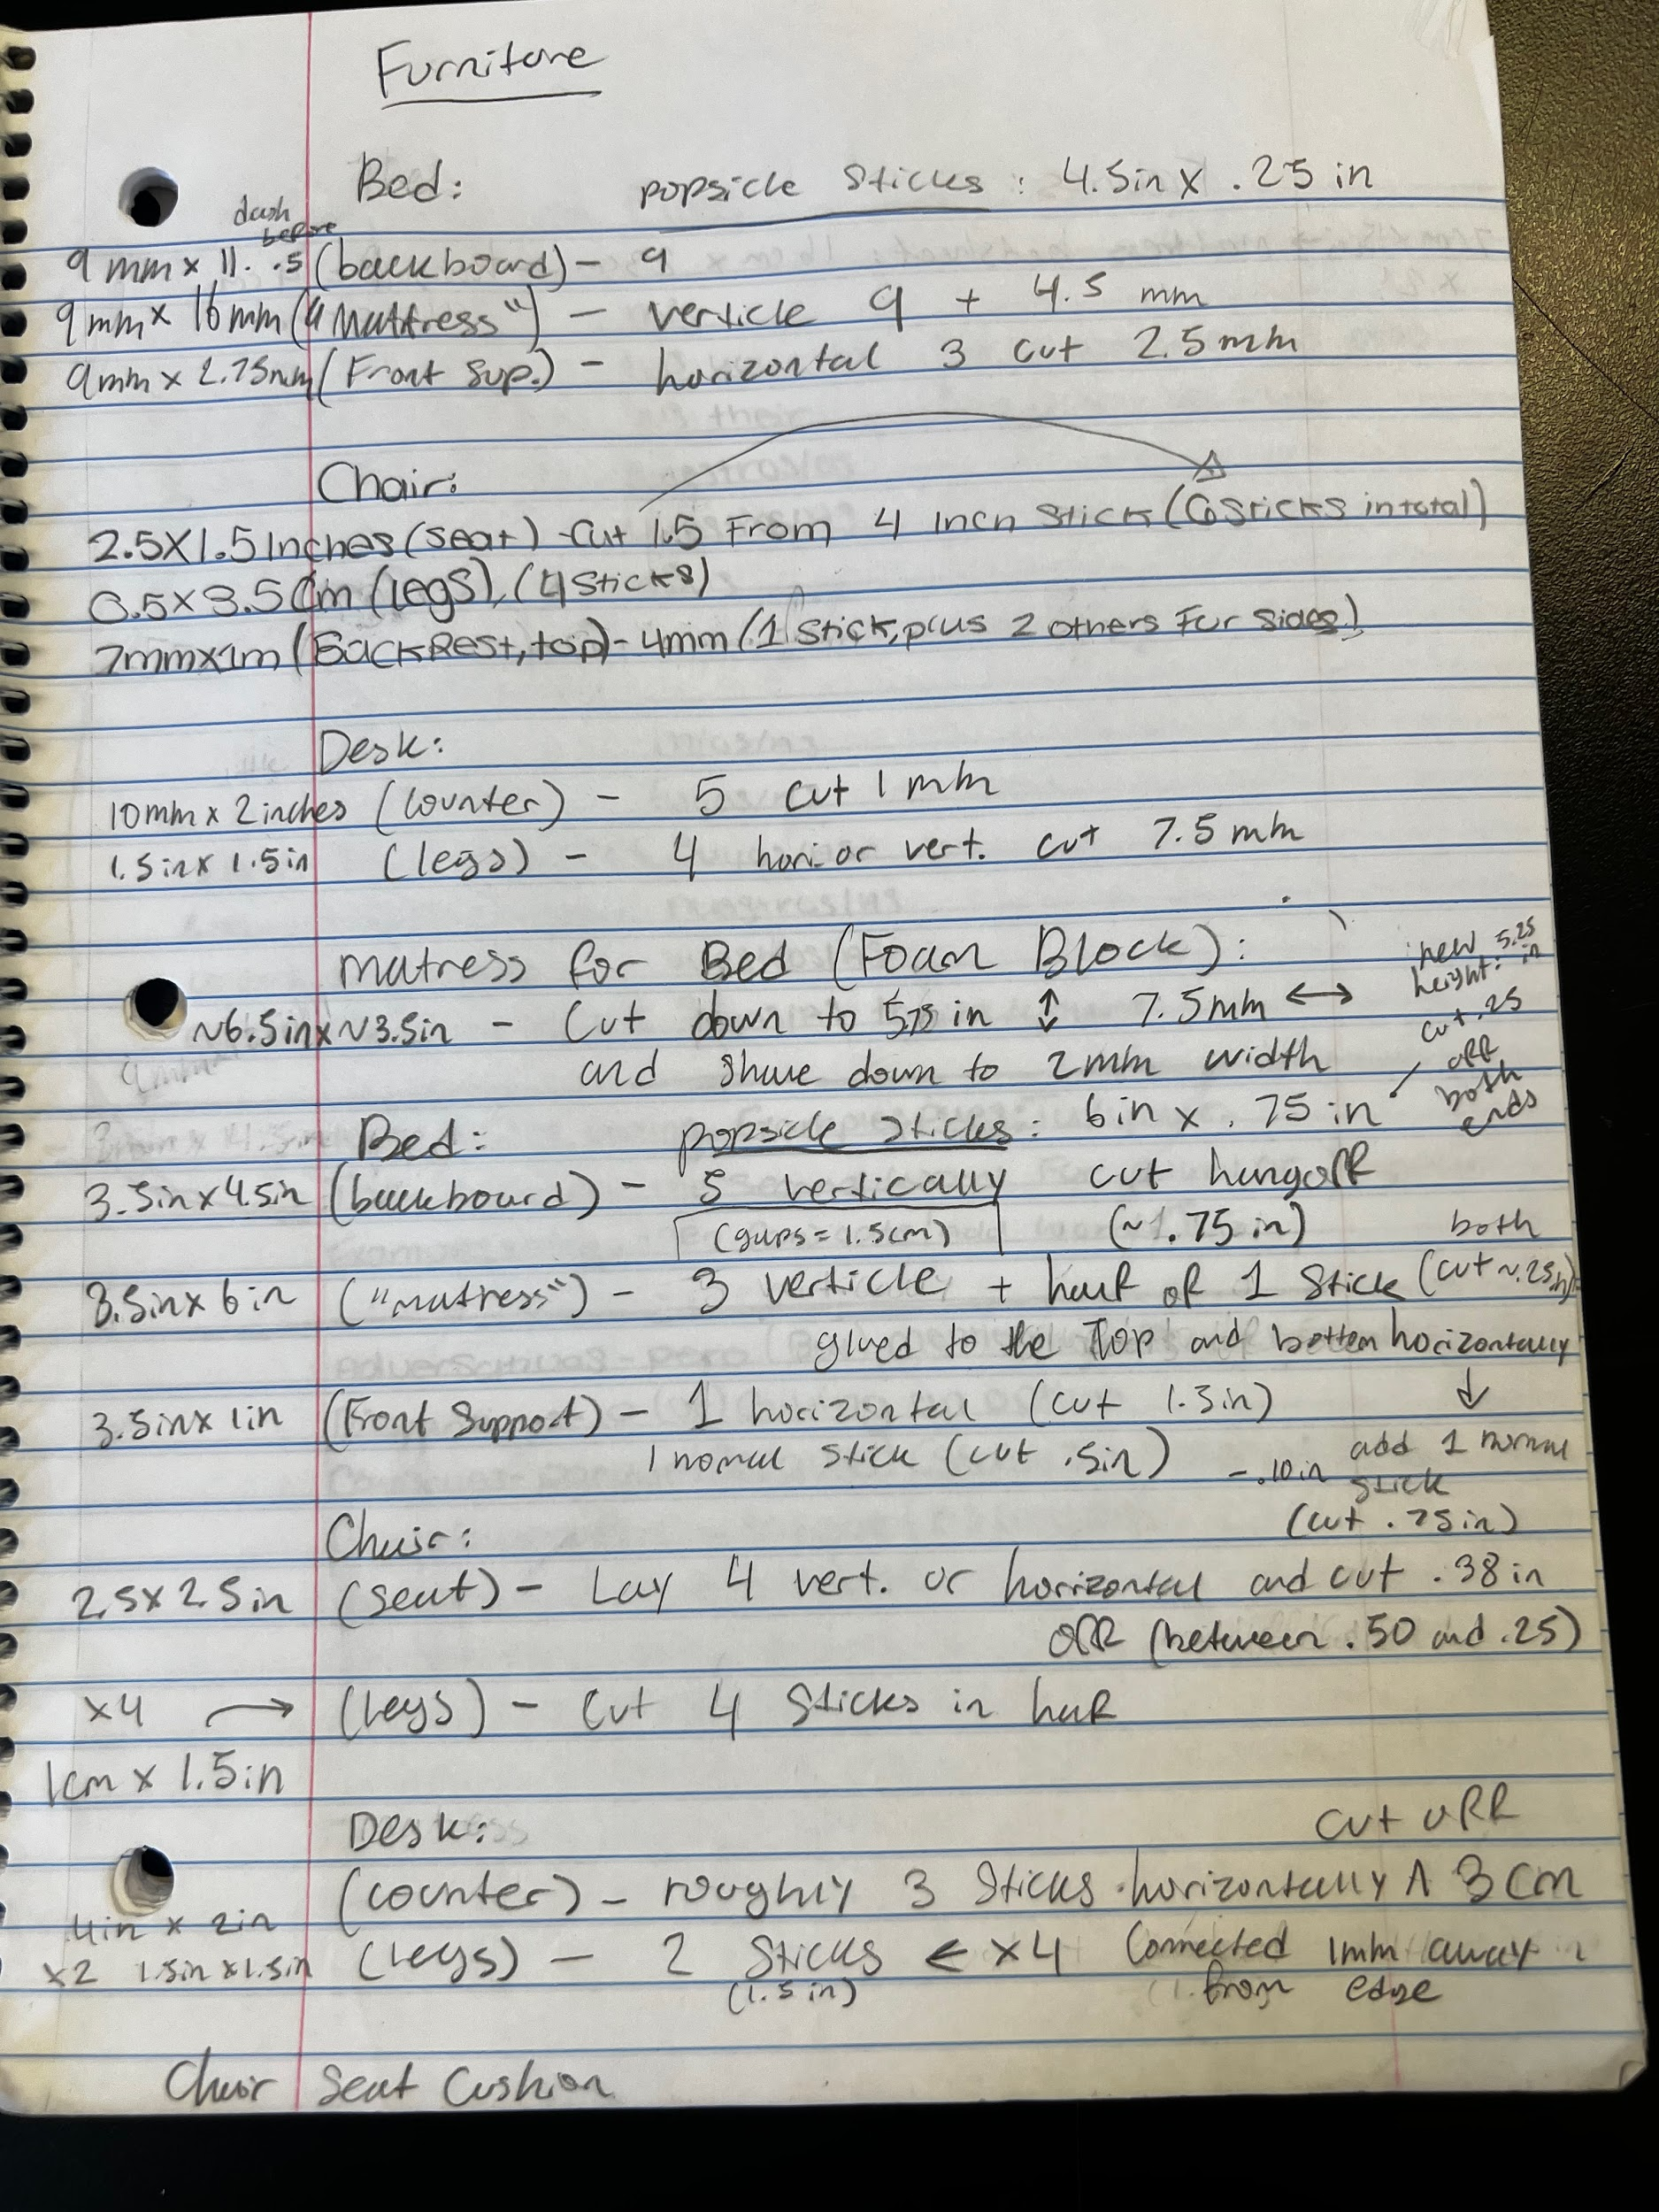 Furniture
Bed: popsicle sticks: 4.5in x .25 in
dash before
9mm x 11. .5 (backboard) - 9
9mm x 16mm ("Mattress") - verticle 9 + 4.5 mm
9mm x 2.75mm (Front Sup.) - horizontal 3 cut 2.5mm
Chair:
2.5X1.5 Inches (seat) - Cut 1.5 From 4 Inch Stick (6 sticks in total)
0.5X3.5 Cm (legs), (4 sticks)
7mmx1m (BackRest, top) - 4mm (1 Stick, plus 2 others For Sides)
Desk:
10mm x 2 inches (counter) - 5 cut 1 mm
1.5in x 1.5in (legs) - 4 hori. or vert. cut 7.5 mm
matress for Bed (Foam Block):
~6.5in x ~3.5in - Cut down to 5.75 in ↕ 7.5mm ↔
and shave down to 2mm width
new height: 5.25 in
cut .25 off both ends
Bed: popsicle sticks: 6in x .75 in
3.5in x 4.5in (backboard) - 5 vertically cut hangoff
(gaps = 1.5cm) (~1.75 in)
3.5in x 6in ("matress") - 3 verticle + half of 1 Stick (both cut ~.25in)
glued to the Top and bottem horizontally
3.5in x 1in (Front Support) - 1 horizontal (cut 1.5in) ↓
1 normal stick (cut .5in) - .10in add 1 normal stick
(cut .75in)
Chair:
2.5 x 2.5in (seat) - Lay 4 vert. or horizontal and cut .38in
off (between .50 and .25)
x4 → (legs) - Cut 4 Sticks in half
1cm x 1.5in
Desk: cut off
4in x 2in (counter) - roughly 3 Sticks horizontally ^ 3cm
x2 1.5in x 1.5in (legs) - 2 Sticks ← x4 Connected 1mm away
(1.5 in) from edge
Chair Seat Cushion